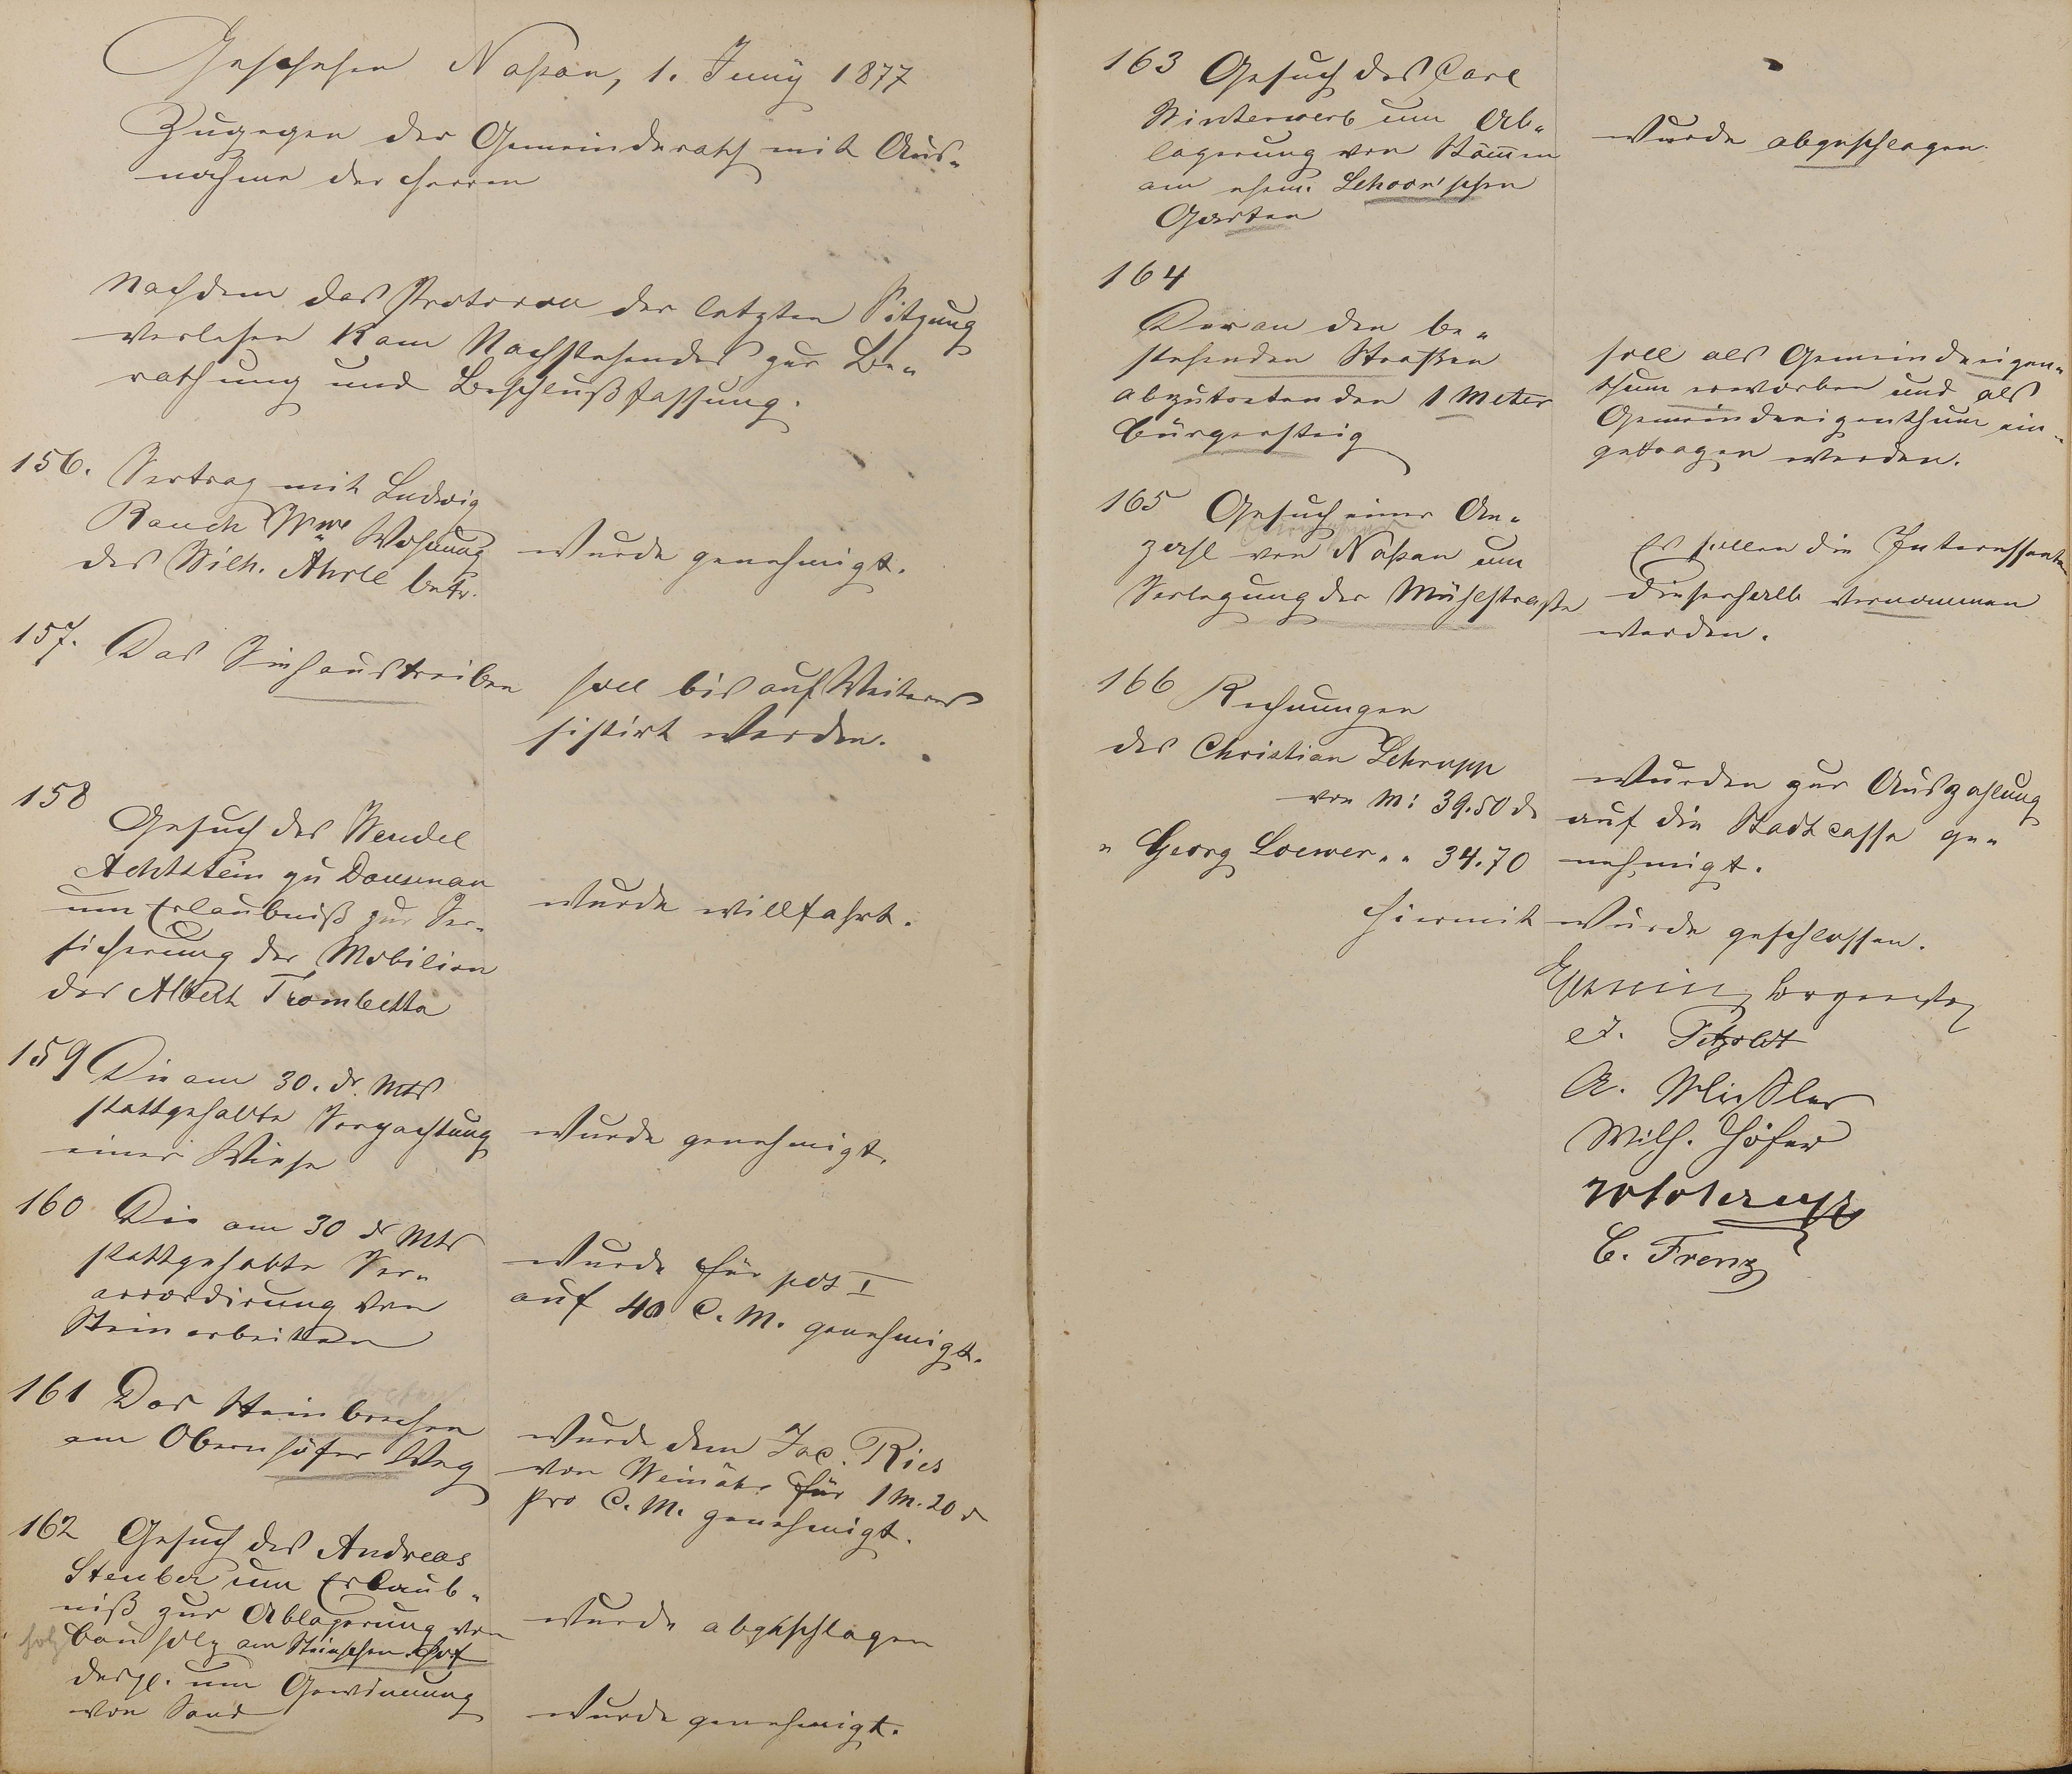 Geschehen Naßau, 1. Juny 1877
Zugegen der Gemeinderath mit Aus-
nahme der Herren
Nachdem das Protocoll der letzten Sitzung
verlesen kam Nachstehendes zur Be-
rathung und Beschlußfassung.
156. Vertrag mit Ludwig
Rauch Wwe Wohnung
des Wilh. Ahrle betr.
wurde genehmigt.
157. Das Viehaustreiben
soll bis auf Weiteres
sistirt werden.
158
Gesuch des Wendel
Achtstein zu Dausenau
um Erlaubniß zur Ver-
sicherung der Mobilien
des Albert Trombetta
wurde willfahrt.
159 Die am 30. d. Mts
stattgehabte Verpachtung
einer Wiese
wurde genehmigt.
160 Die am 30 d Mts
stattgehabte Ver-
accordirung von
Steinarbeiten
wurde für pos I
auf 40 C. M. genehmigt.
161 Das Steinbrechen
am Obernhöfer Weg
wurde dem Jac. Ries
von Weinähr für 1 M. 20 d
pro C. M. genehmigt.
162 Gesuch des Andreas
Steuber um Erlaub-
niß zur Ablagerung von
holz Bauholz am Steinschen Hof
wurde abgeschlagen
desgl. um Gewinnung
von Sand
wurde genehmigt.
163 Gesuch des Carl
Winterwerb um Ab-
lagerung von Stämen
am ehem. Schoor'schen
Garten
wurde abgeschlagen.
164
Der an den be-
stehenden Straßen
abzutretenden 1 Meter
Bürgersteig
soll als Gemeindeeigen-
thum erworben und als
Gemeindeeigenthum ein-
getragen werden.
165 Gesuch einer An-
zahl von Naßau um
Verlegung der Mühlstraße
Es sollen die Interessenten
dieserhalb vernommen
werden.
166 Rechnungen
des Christian Schrupp
von M: 39.50 d
" Georg Loewer " " 34.70
wurden zur Auszahlung
auf die Stadtcasse ge-
nehmigt.
Hiermit wurde geschlossen.
Bürgermstr
A. Mießler
Wilh. Höfer
C. Frenz